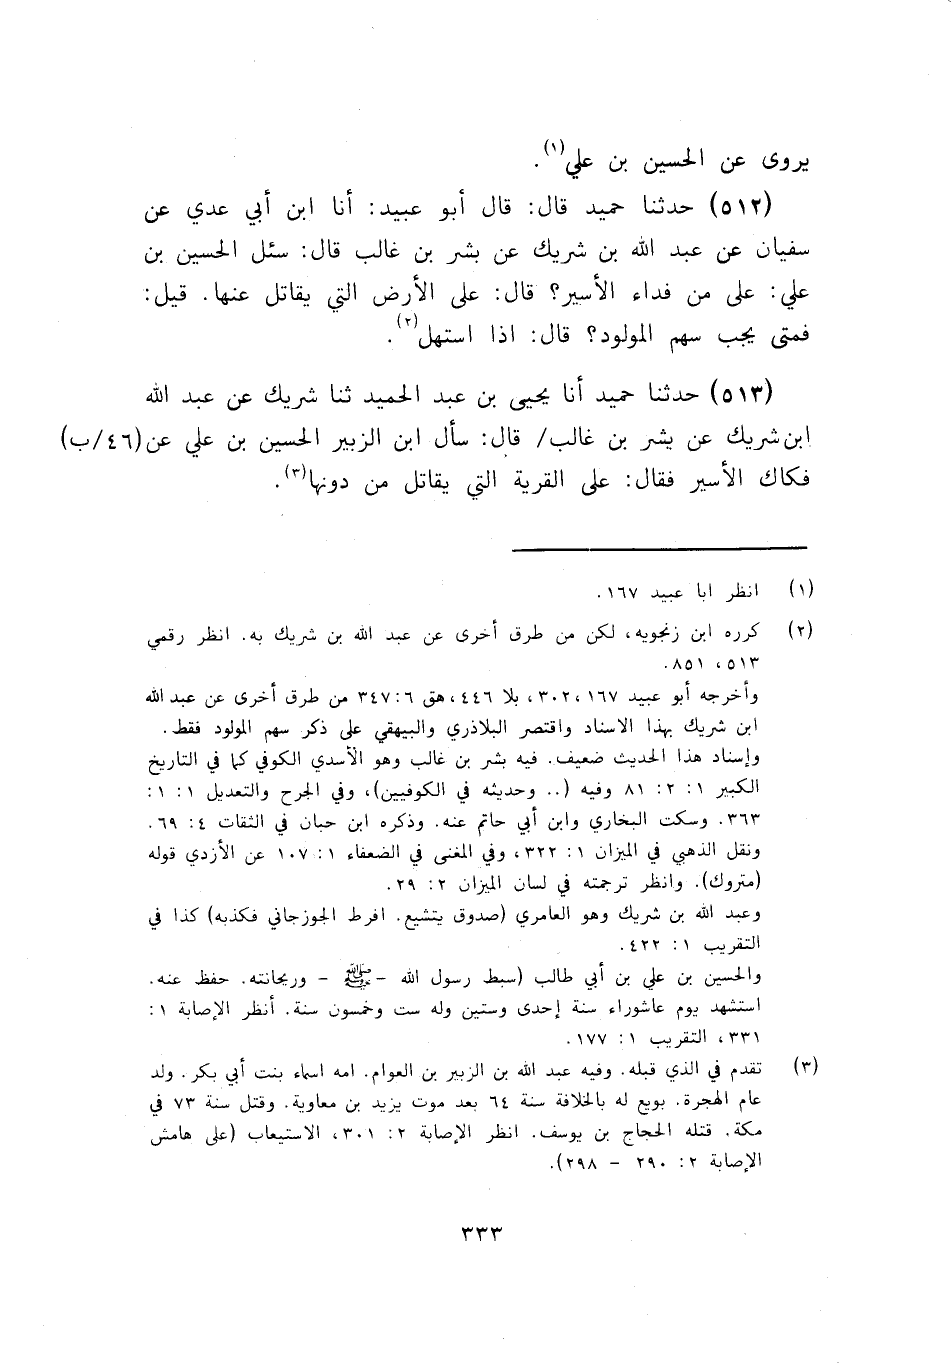 يروى عن الحسين بن علي(١).
(٥١٢) حدثنا حميد قال: قال أبو عبيد: أنا ابن أبي عدي عن
سفيان عن عبد الله بن شريك عن بشر بن غالب قال: سئل الحسين بن
علي: على من فداء الأسير؟ قال: على الأرض التي يقاتل عنها. قيل:
فمتى يجب سهم المولود؟ قال: اذا استهل(٢).
(٥١٣) حدثنا حميد أنا يحيى بن عبد الحميد ثنا شريك عن عبد الله
ابن شريك عن بشر بن غالب/ قال: سأل ابن الزبير الحسين بن علي عن(٤٦/ب)
فكاك الأسير فقال: على القرية التي يقاتل من دونها(٣).
(١) انظر ابا عبيد ١٦٧.
(٢) كرره ابن زنجويه، لكن من طرق أخرى عن عبد الله بن شريك به. انظر رقمي
٥١٣، ٨٥١.
وأخرجه أبو عبيد ١٦٧، ٣٠٢، بلا ٤٤٦، هق ٦: ٣٤٧ من طرق أخرى عن عبد الله
ابن شريك بهذا الاسناد واقتصر البلاذري والبيهقي على ذكر سهم المولود فقط.
وإسناد هذا الحديث ضعيف. فيه بشر بن غالب وهو الأسدي الكوفي كما في التاريخ
الكبير ١: ٢: ٨١ وفيه (.. وحديثه في الكوفيين)، وفي الجرح والتعديل ١: ١:
٣٦٣. وسكت البخاري وابن أبي حاتم عنه. وذكره ابن حبان في الثقات ٤: ٦٩.
ونقل الذهبي في الميزان ١: ٣٢٢، وفي المغنى في الضعفاء ١: ١٠٧ عن الأزدي قوله
(متروك). وانظر ترجمته في لسان الميزان ٢: ٢٩.
وعبد الله بن شريك وهو العامري (صدوق يتشيع. افرط الجوزجاني فكذبه) كذا في
التقريب ١: ٤٢٢.
والحسين بن علي بن أبي طالب (سبط رسول الله - ﷺ - وريحانته. حفظ عنه.
استشهد يوم عاشوراء سنة إحدى وستين وله ست وخمسون سنة. أنظر الإصابة ١:
٣٣١، التقريب ١: ١٧٧.
(٣) تقدم في الذي قبله. وفيه عبد الله بن الزبير بن العوام. امه اسماء بنت أبي بكر. ولد
عام الهجرة. بويع له بالخلافة سنة ٦٤ بعد موت يزيد بن معاوية. وقتل سنة ٧٣ في
مكة. قتله الحجاج بن يوسف. انظر الإصابة ٢: ٣٠١، الاستيعاب (على هامش
الإصابة ٢: ٢٩٠ - ٢٩٨).
٣٣٣